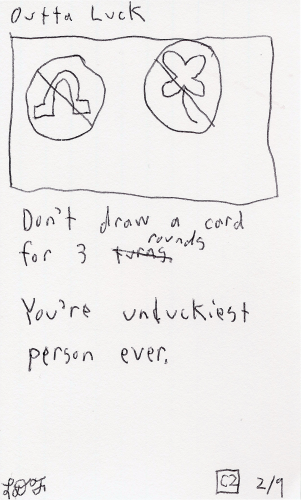 Outta Luck
Don't draw a card
for 3 turns rounds
You're unluckiest
person ever.
C2 2/9